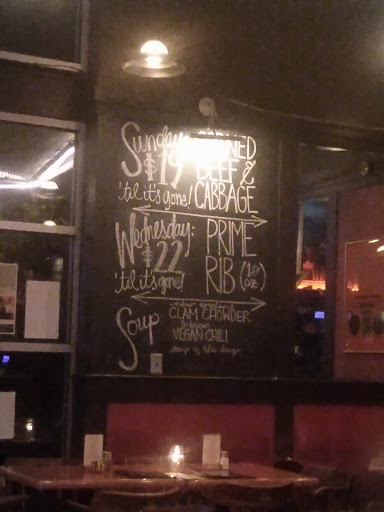 Sunday: CORNED
$19 BEEF &
'til it's gone! CABBAGE
Wednesday: PRIME
$22 RIB (18 oz)
'til it's gone!
Soup
New England
CLAM CHOWDER
VEGAN CHILI
soup of the day